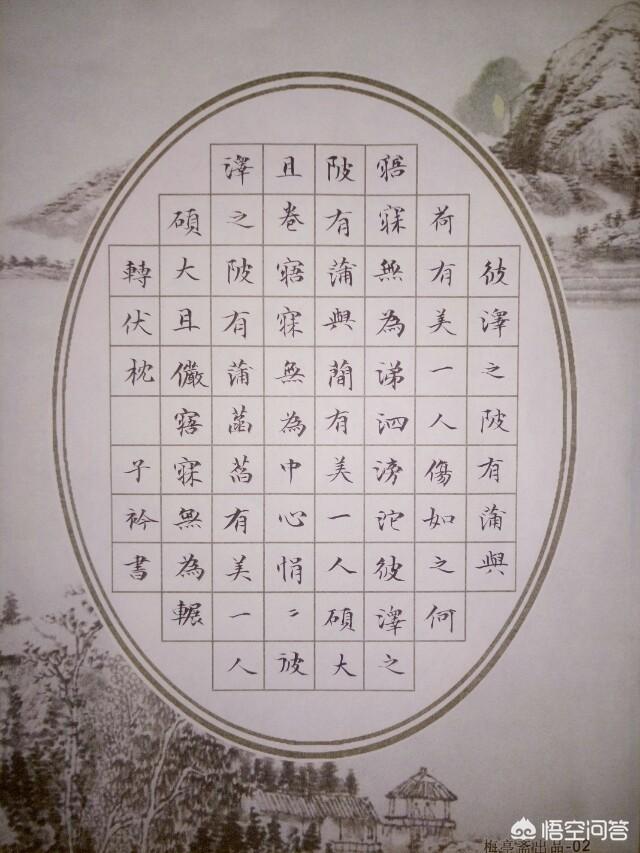 彼澤之陂有蒲與
荷有美一人傷如之何
寤寐無為涕泗滂沱彼澤之
陂有蒲與蕳有美一人碩大
且卷寤寐無為中心悁〻彼
澤之陂有蒲菡萏有美一人
碩大且儼寤寐無為輾
轉伏枕 子衿書
出品-02
悟空问答